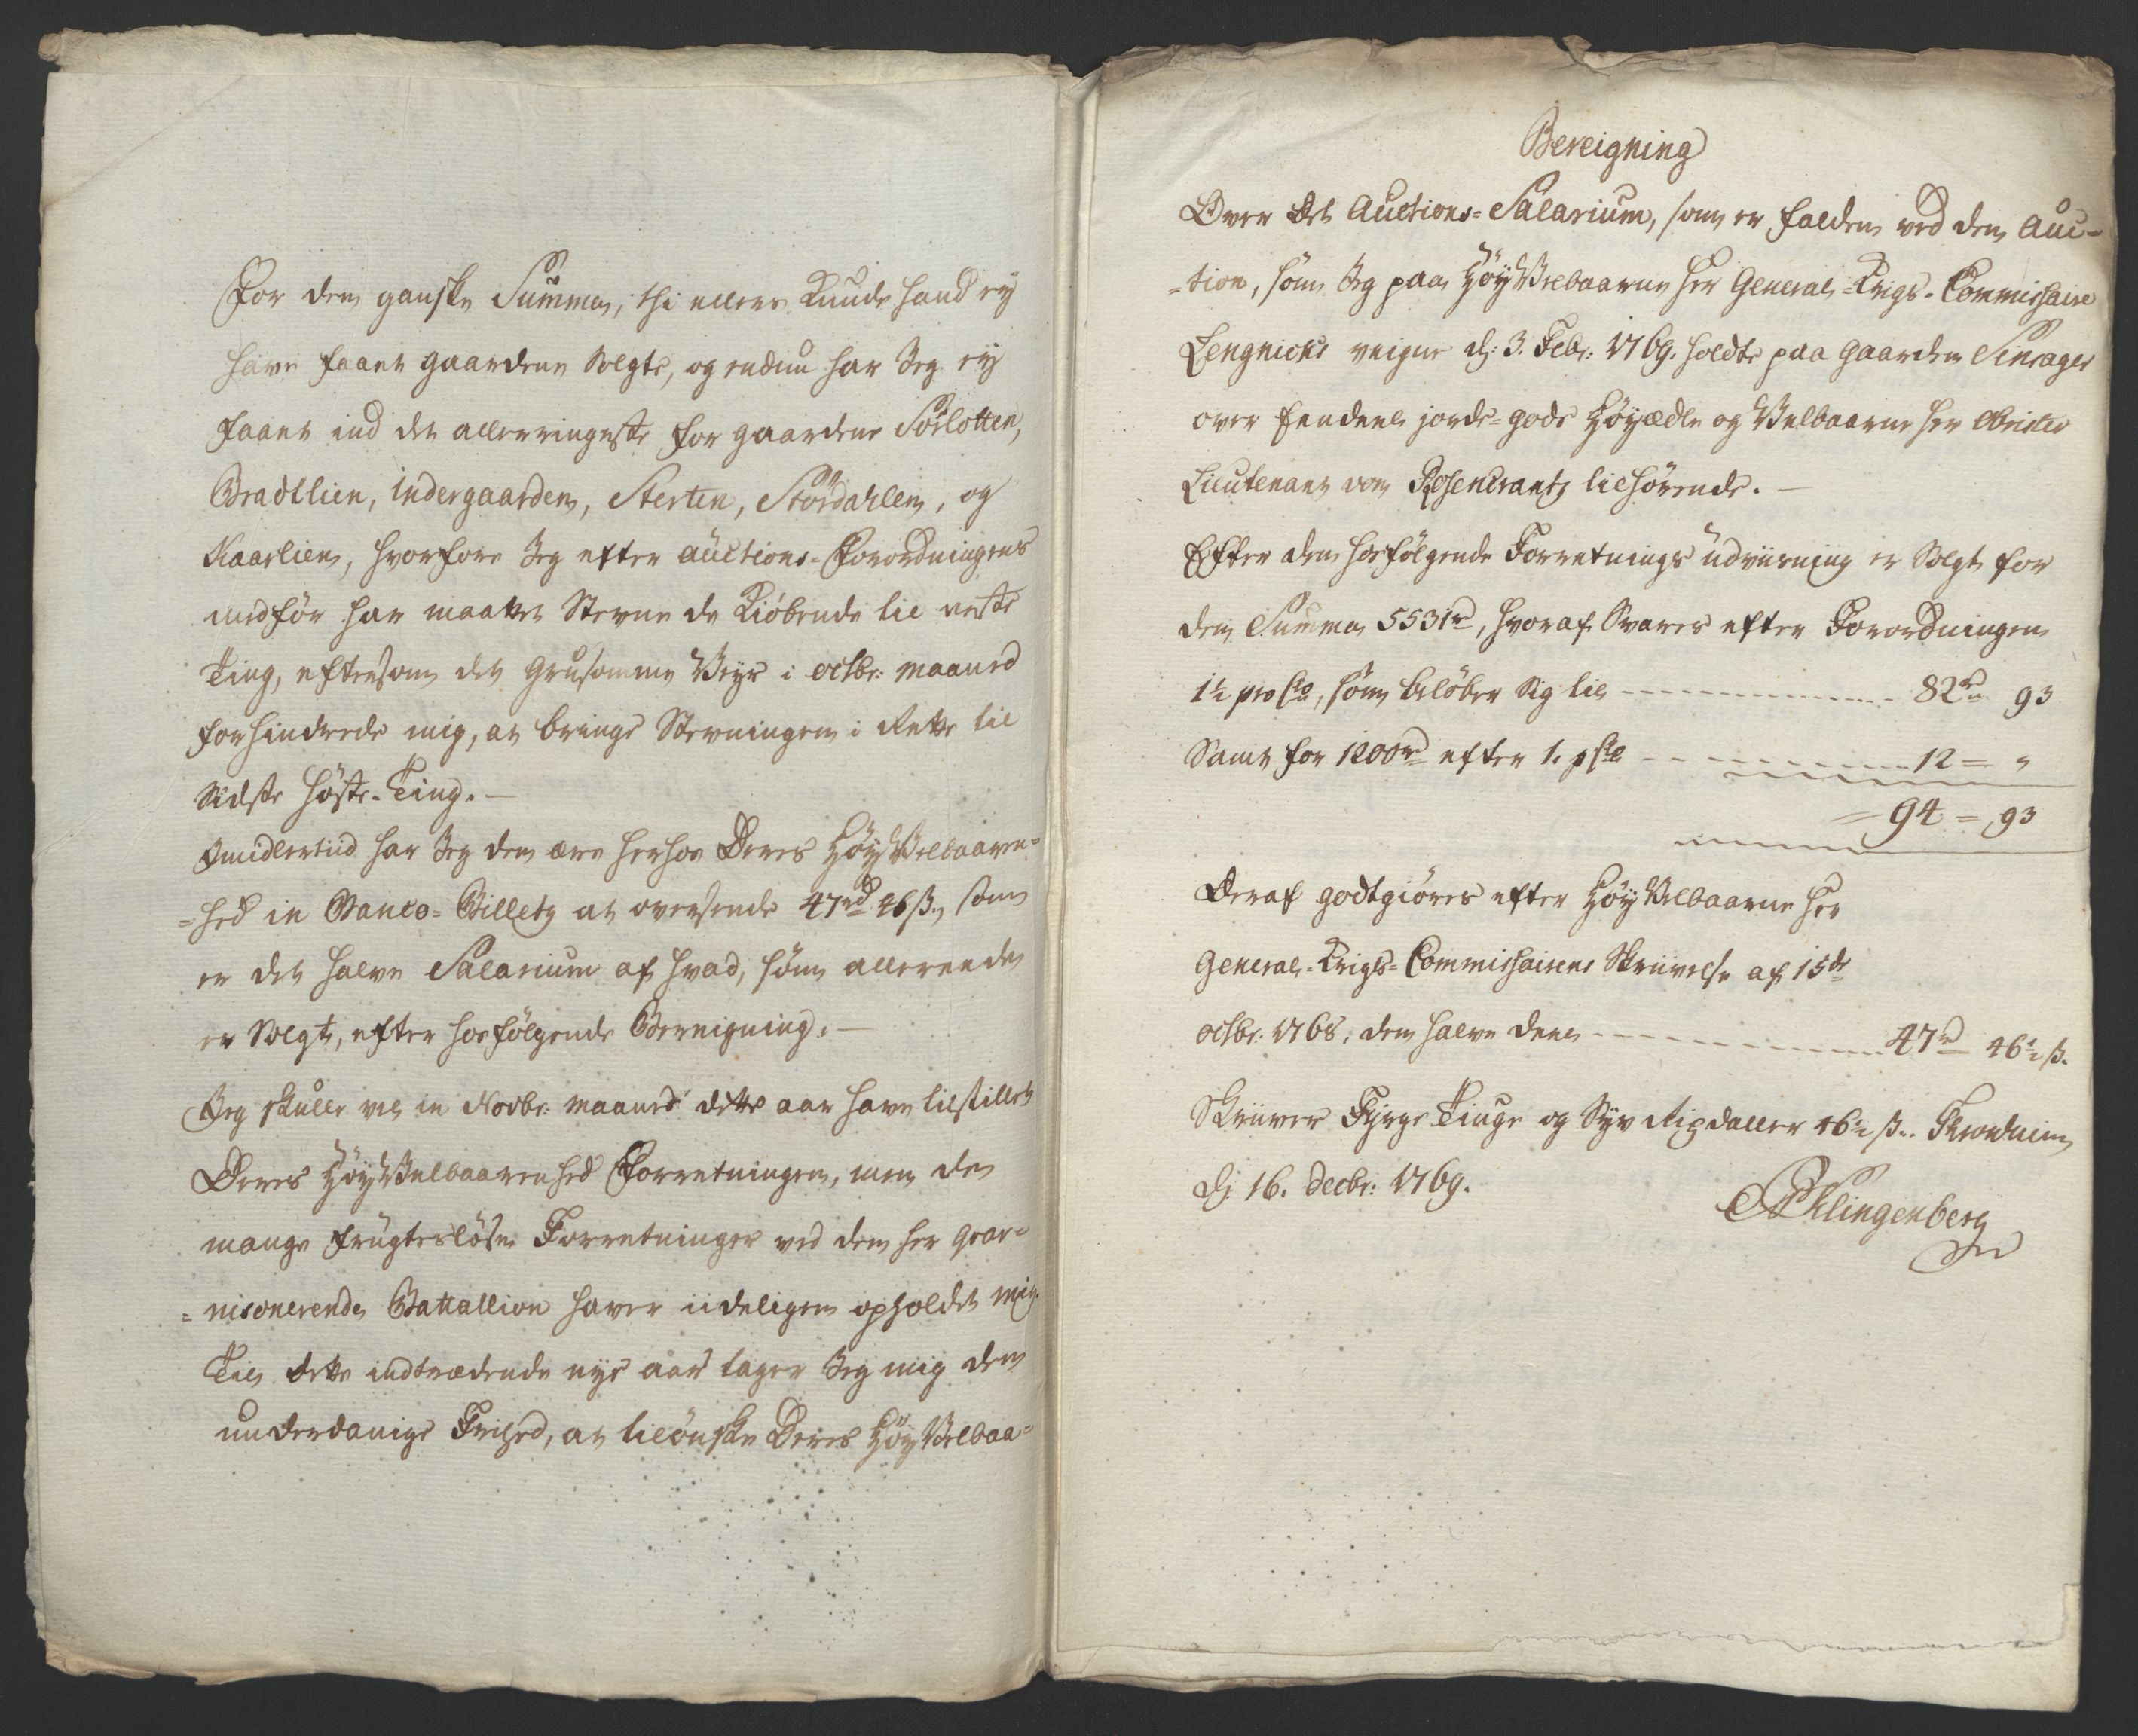 For den ganske Summa, thi ellers Kunde hand ey
have faaet gaardene Solgte, og endnu har Jeg ey
faaet ind det allerringeste for gaardene Sörlotten,
Bradtlien, indergaarden, Sterten, Stördahlen, og
Kaarlien, hvorfore Jeg efter auctions-Forordningens
medför har maattet Stevne de Kiöbende til neste
Ting, eftersom det grusomme Veyr i octbr: maaned
forhindrede mig, at bringe Stevningen i Rette til
Sidste höste-Ting.—
Jmidlertiid har Jeg den ære herhos Deres HöyVelbaaren-
-hed in Banco-Billetz at oversende 47rd 46 ß., som
er det halve Salarium af hvad, som allereede
er Solgt, efter hosfölgende Bereigning.—
Jeg skulle vel in Novbr: maaned dette aar have tilstillet
Deres HöyVelbaarenhed Forretningen, men de
mange frugteslöse Forretninger ved den her gvar-
-nisonerende Battallion haver iideligen opholdet mig.
Til dette indtrædende nye aar tager Jeg mig den
underdanige Friehed, at tilönske Deres HöyVelbaa-
Bereigning
Over det Auctions-Salarium, som er falden ved den Auc-
-tion, som Jeg paa HöyVelbaarne Her General-Krigs-Commissaire
Lengnicks veigne d: 3. Febr: 1769. holdte paa gaarden Sinsager
over Eendeel jorde-gods Höyædle og Velbaarne Her Obrister
Lieutenant von Rosencrantz tilhörende.—
Efter den hosfölgende Forretnings udviisning er Solgt for
den Summa 5531rd, hvoraf Svares efter Forordningen
1½ pro Cto, som belöber Sig til - - - 82rd 93
Samt for 1200rd efter 1. p Cto - - - 12 = "
= 94 = 93
Deraf godtgiöres efter HöyVelbaarne Her
General-Krigs-Commissairens Skrivelse af 15de
octbr: 1768, den halve Deel - - - 47rd 46½ ß.
Skriver Fyrge Tiuge og Syv Rixdaller 46½ ß.. Tronhiem
d: 16. Decbr: 1769.
Klingenberg